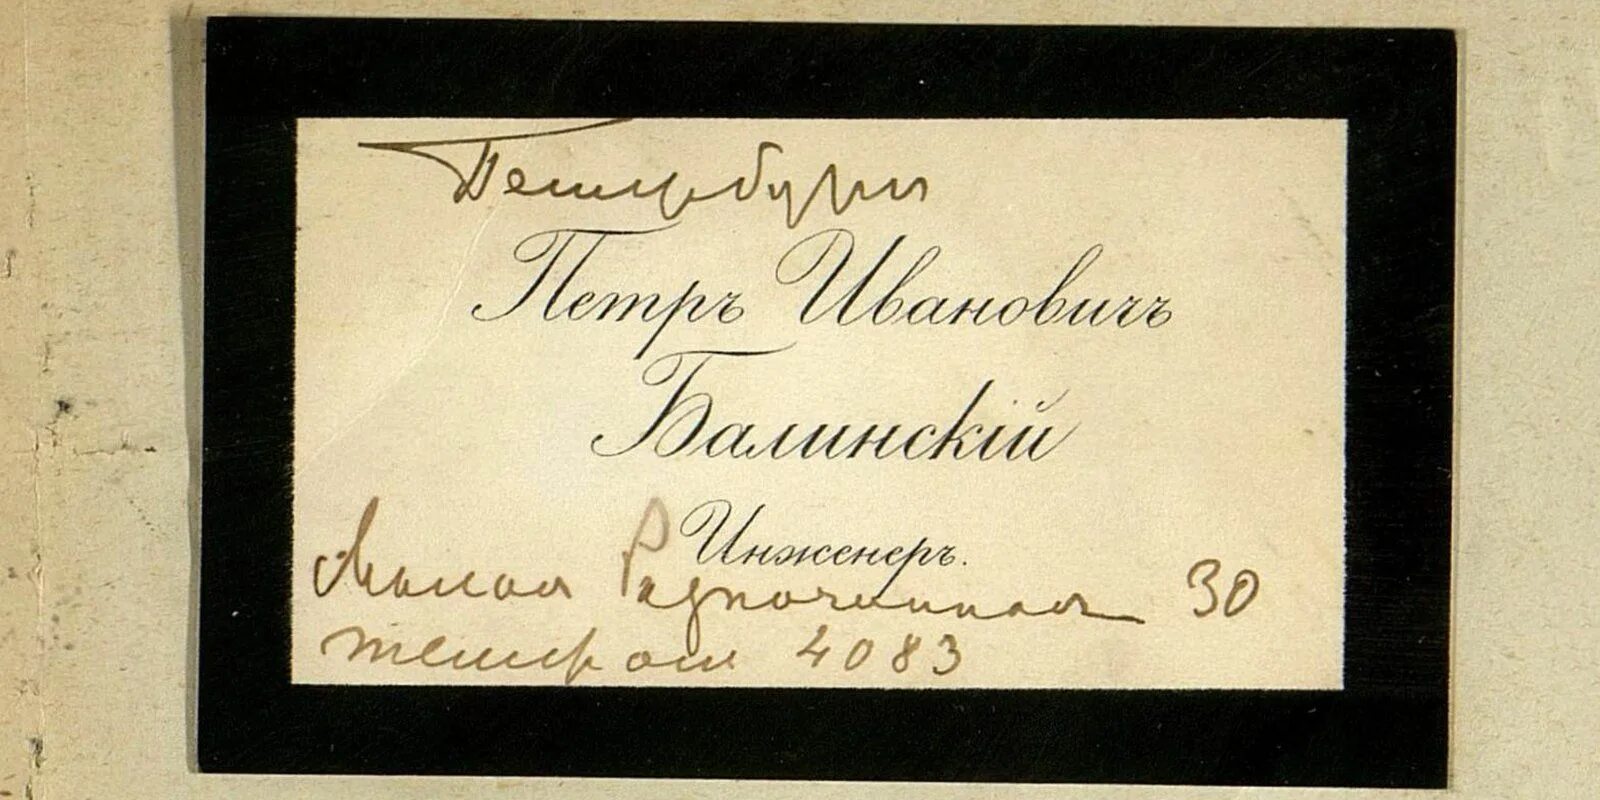 Петербург
Петръ Ивановичъ
Балинскій
Инженеръ.
Малая 30
телефон 4083